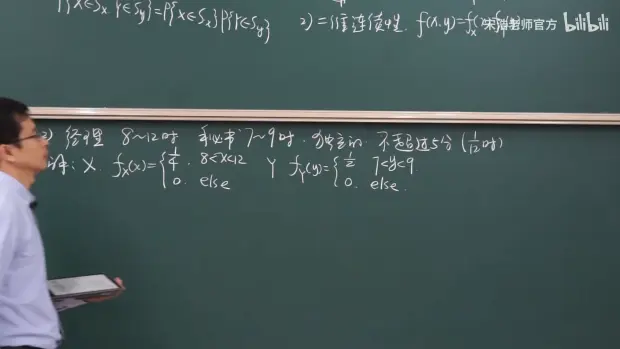 P{X∈Sx, Y∈Sy}=P{X∈Sx}P{Y∈Sy} 2) 二维连续性 f(x,y)=fx(
宋浩老师官方 bilibili
2) 经理 8~12时 秘书7~9时. 独立的. 不超过5分 (1/12时)
解: X. fX(x)={1/4, 8<x<12 Y fY(y)={1/2 7<y<9
0. else 0. else.